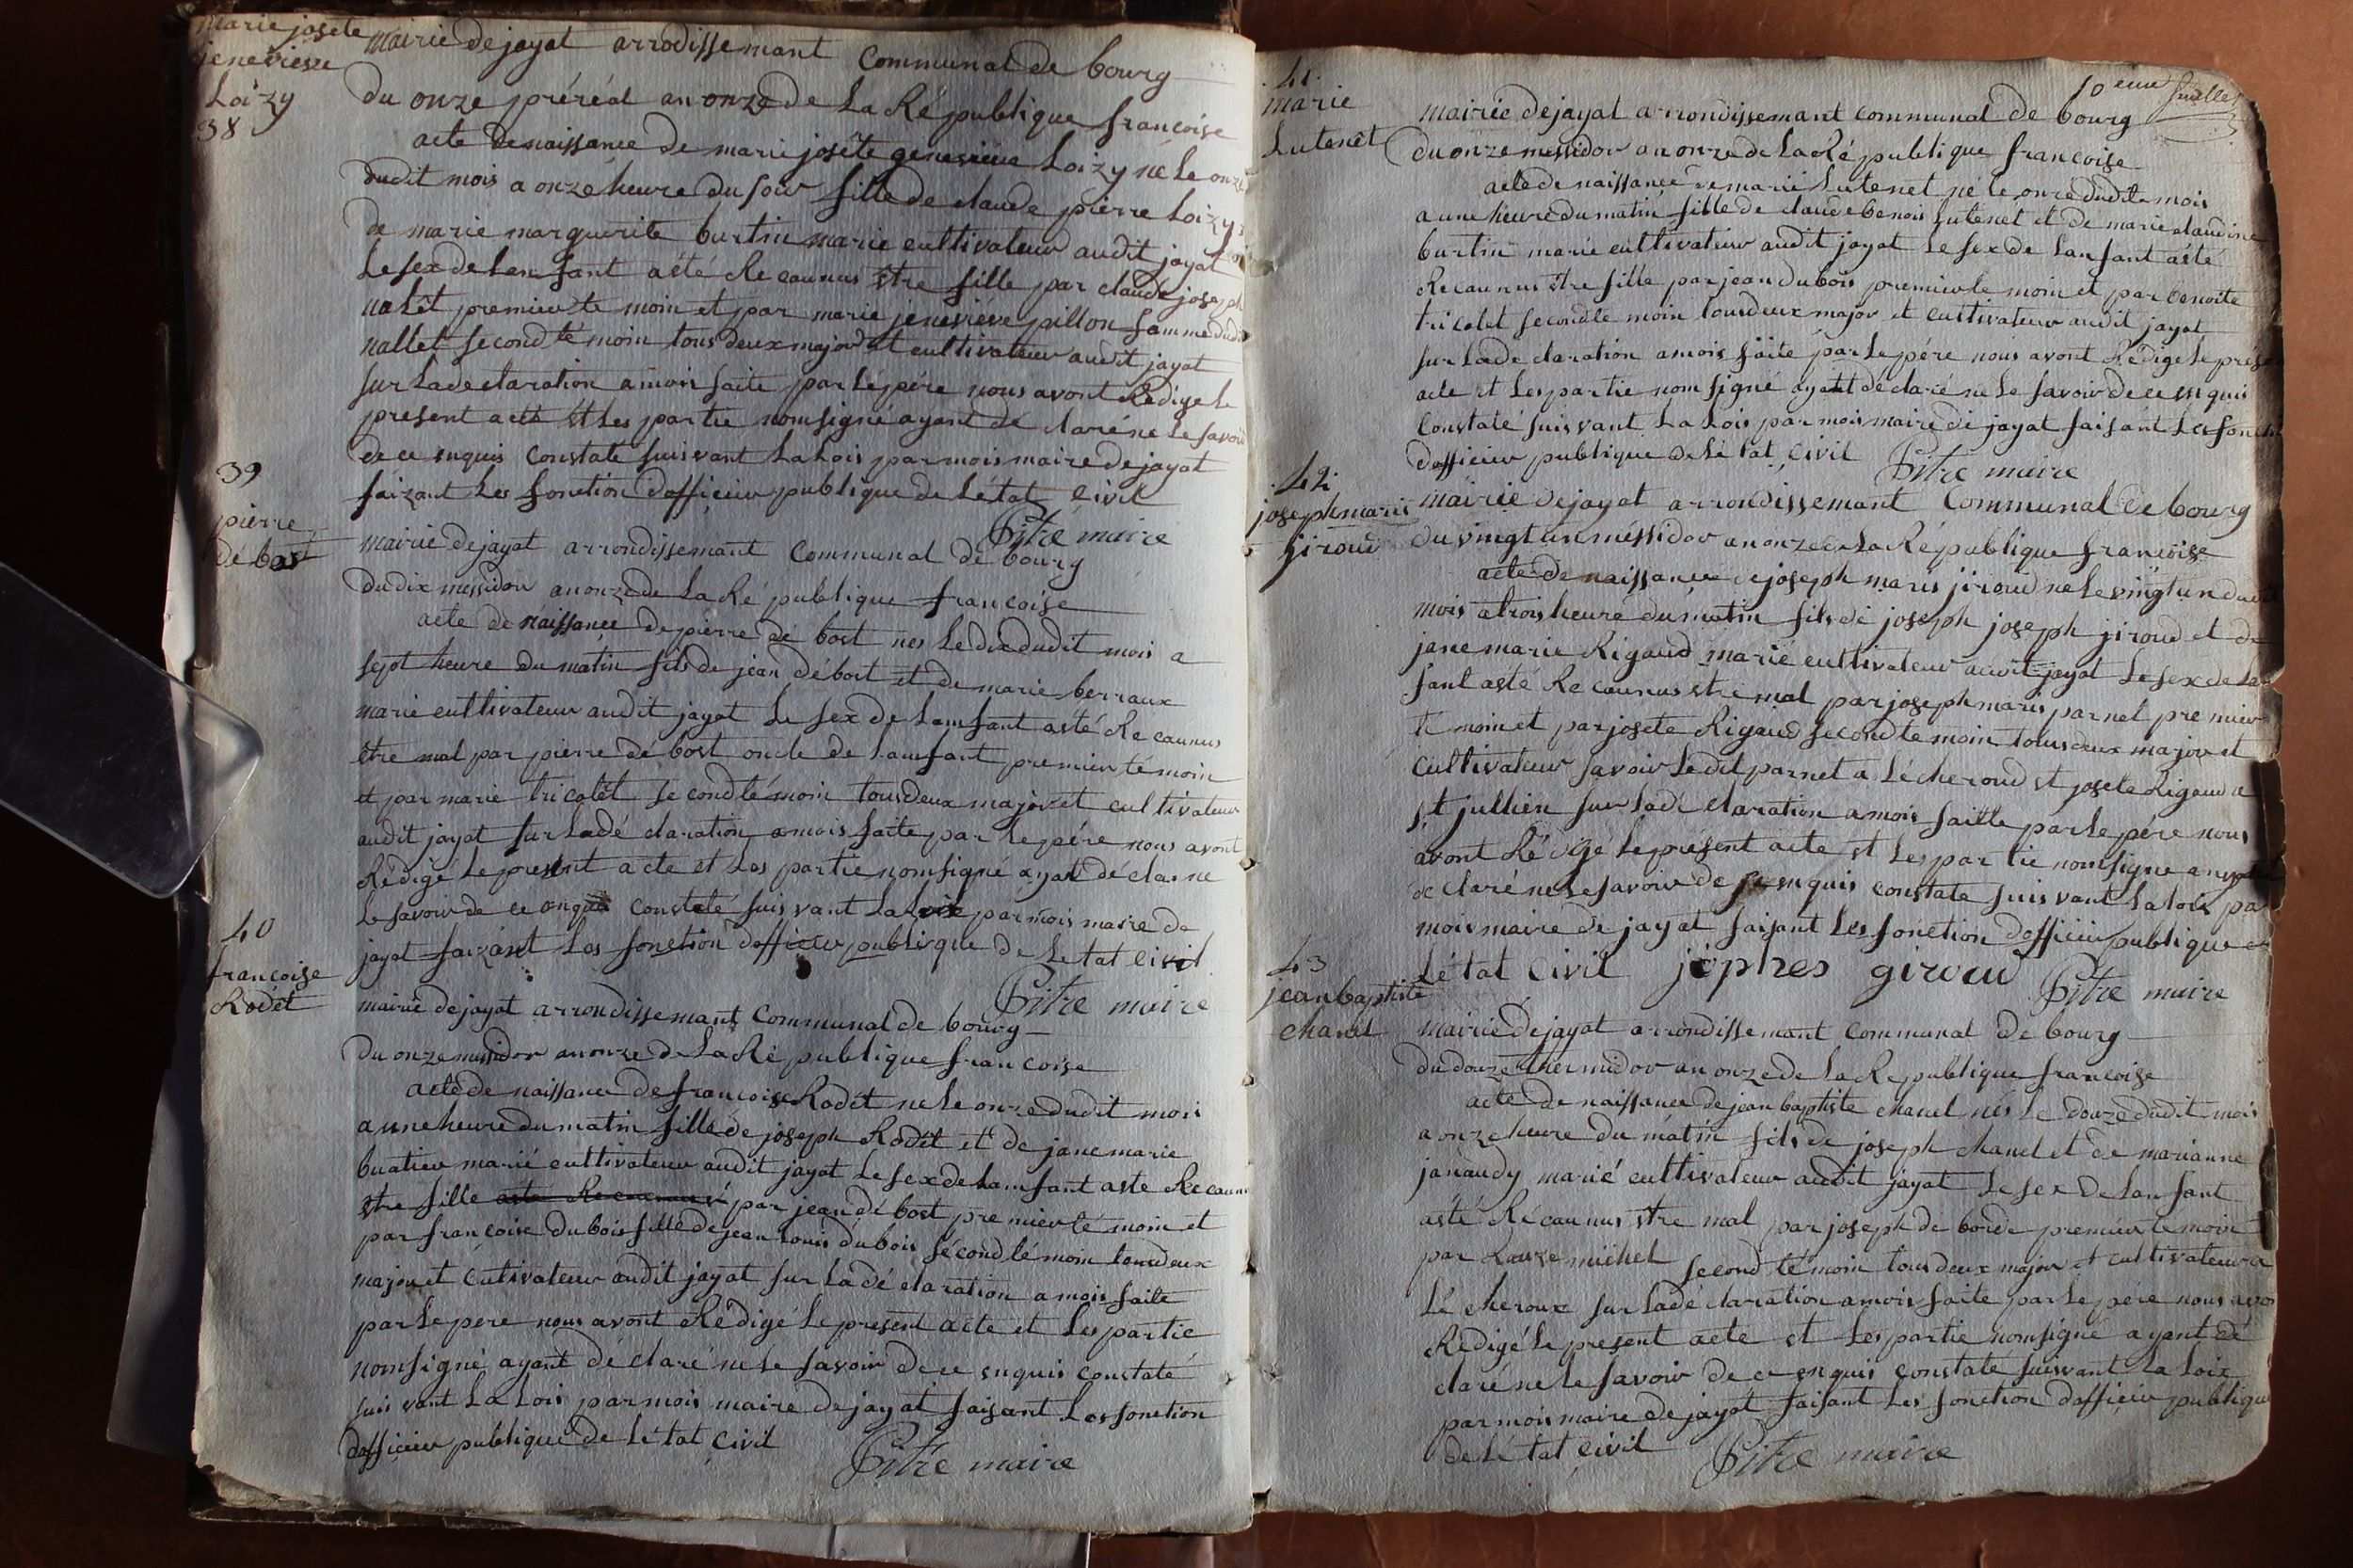 marie josete
jenevieve
Loizy
38
mairie de jayat arrodissemant Communal de bourg
du onze préréal an onze de La République francoise
acte de naissance de marie joséte genevieve Loizy né Le onze
dudit mois a onzé heure du soir fille de claude pierre Loizy
de marie marguerite burtin marie cultivateur audit jayat
Le sex de Lenfant asté Recaunus être fille par claude joseph
nalét premier te moin et par marie jenevréve pillon famme dudi
nallet second té moin tous deux major et cultivateur audit jayat
sur La declaration a mois faite par Le pére nous avont Rédigé Le
present acte et Les partie nomsigné ayant dé claré ne Le savoir
de ce enquis Constaté suis vant La Lois par mois maire de jayat
faizant Les fonction dofficier publique de Létat civil
Pitre maire
39
pierre
dé bost
mairie de jayat arrondissemant Communal de bourg
du dix messidor an onze de La République francoise
acte de naissance de pierre dé bost nes Le dix dudit mois a
sept heure du matin fils de jean débost et de marie berraux
marie cultivateur audit jayat Le sex de Lamfant asté Recaunus
étre mal par pierre dé bost oncle de Lamfant premier témoin
et par marie tricolét second témoin tous deux major et cultivateur
audit jayat sur La dé claration a mois faite par Le pére nous avont
Rédigé Le present acte et Les partie nomsigné ayat dé clar ne
Le savoir de ce enquis constaté suis vant La Loix par mois maire de
jayat faizant Les fonction dofficier publique de Letat civil
Pitre maire
40
francoise
Rodét
mairie de jayat arrondissemant Communal de bourg
Du onze messidor an onze de La République francoise
acte de naissance de francoise Rodét ne Le onze dudit mois
a une heure du matin fille de joseph Rodét et de jane marie
buatier marié cultivateur audit jayat Le sex de Lamfant aste Recaun
stre fille aste Recaunus par jean dé bost premier té moin et
par francoise dubois fille de jean Louis dubois sécond témoin tous deux
major et cultivateur audit jayat sur La dé claration a mois faite
par Le pere nous avont Rédigé Le present acte et Les partie
nomsigné ayant dé claré ne Le savoir de ce enquis constaté
suis vant La Lois par mois maire de jayat faisant Les fonction
dofficier publique de Létat civil
Pitre maire
10 eme feuillet
41
marie
Lutenét
mairie de jayat arrondissemant communal de bourg
du onze messidor an onze de La République francoise
acte de naissance de marie Lutenet né le onze dudit mois
a une heure du matin fille de claude benois Lutenet et de marie claudine
burtin marié cultivateur audit jayat Le sex de Lanfant asté
Recaunus être fille par jean dubois premier te moin et par benoite
tricolet second te moin tous deux major et cultivateur audit jayat
sur La de claration a mois faite par Le pére nous avont Rédigé Le prése
acte et Les partie nomsigné ayant dé claré ne Le savoir de ce enquis
Constaté suis vant La Lois par mois maire de jayat faisant Les foncti
dofficier publique de Létat Civil
Pitre maire
42
joseph maris
jiroud
mairie de jayat arrondissemant Communal de bourg
du vingt un messidor an onze de La République francoise
acte de naissance de joseph maris jiroud ne Le vingt un dudit
mois a trois heure du matin fils de joseph joseph jiroud et de
jane marie Rigaud marié cultivateur audit jayat Le sex de La
fant asté Recaunus stre mal par joseph maris parnet premier
te moin et par josete Rigaud second te moin tous deux major et
Cultivateur savoir Ledit parnet a Lécheroud et josete Rigaud a
st jullien sur La dé claration a mois faitte par Le pére nous
avont Rédigé Le présent acte et Les partie nomsigne
de claré ne Le savoir de ce enquis constaté suis vant La Lois pa
mois maire de jayat faisant Les fonction dofficier publique
Létat civil jophes giroud
Pitre maire
43
jean baptiste
chanel
mairie de jayat arrondissemant communal de bourg
du douze thermidor an onze de La République francoise
acte de naissance de jean baptiste chanel nés Le douze dudit mois
a onze heure du matin fils de joseph chanel et de marianne
janaudy marié cultivateur audit jayat Le sex de Lanfant
asté Récaunus stre mal par joseph de borde premier te moin
par Rouze michel second té moin tous deux major et cultivateur a
Lé cheroux sur La dé claration a mois faite par Le pére nous avon
Redigé Le present acte et Les partie nomsigné ayant dé
claré ne Le savoir de ce enquis constaté suivant La Loix
par mois maire de jayat faisant Les fonction dofficier publique
de Lé tat civil
Pitre maire